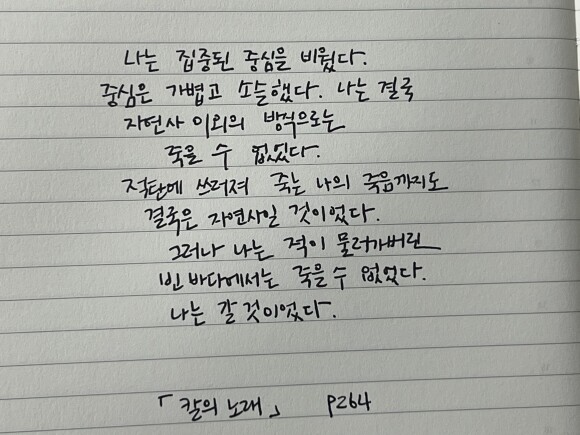 나는 집중된 중심을 비웠다.
중심은 가볍고 소슬했다. 나는 결국
자연사 이외의 방식으로는
죽을 수 없었다.
적탄에 쓰러져 죽는 나의 죽음까지도
결국은 자연사일 것이었다.
그러나 나는 적이 물러가버린
빈 바다에서는 죽을 수 없었다.
나는 갈 것이었다.
「칼의 노래」 p264